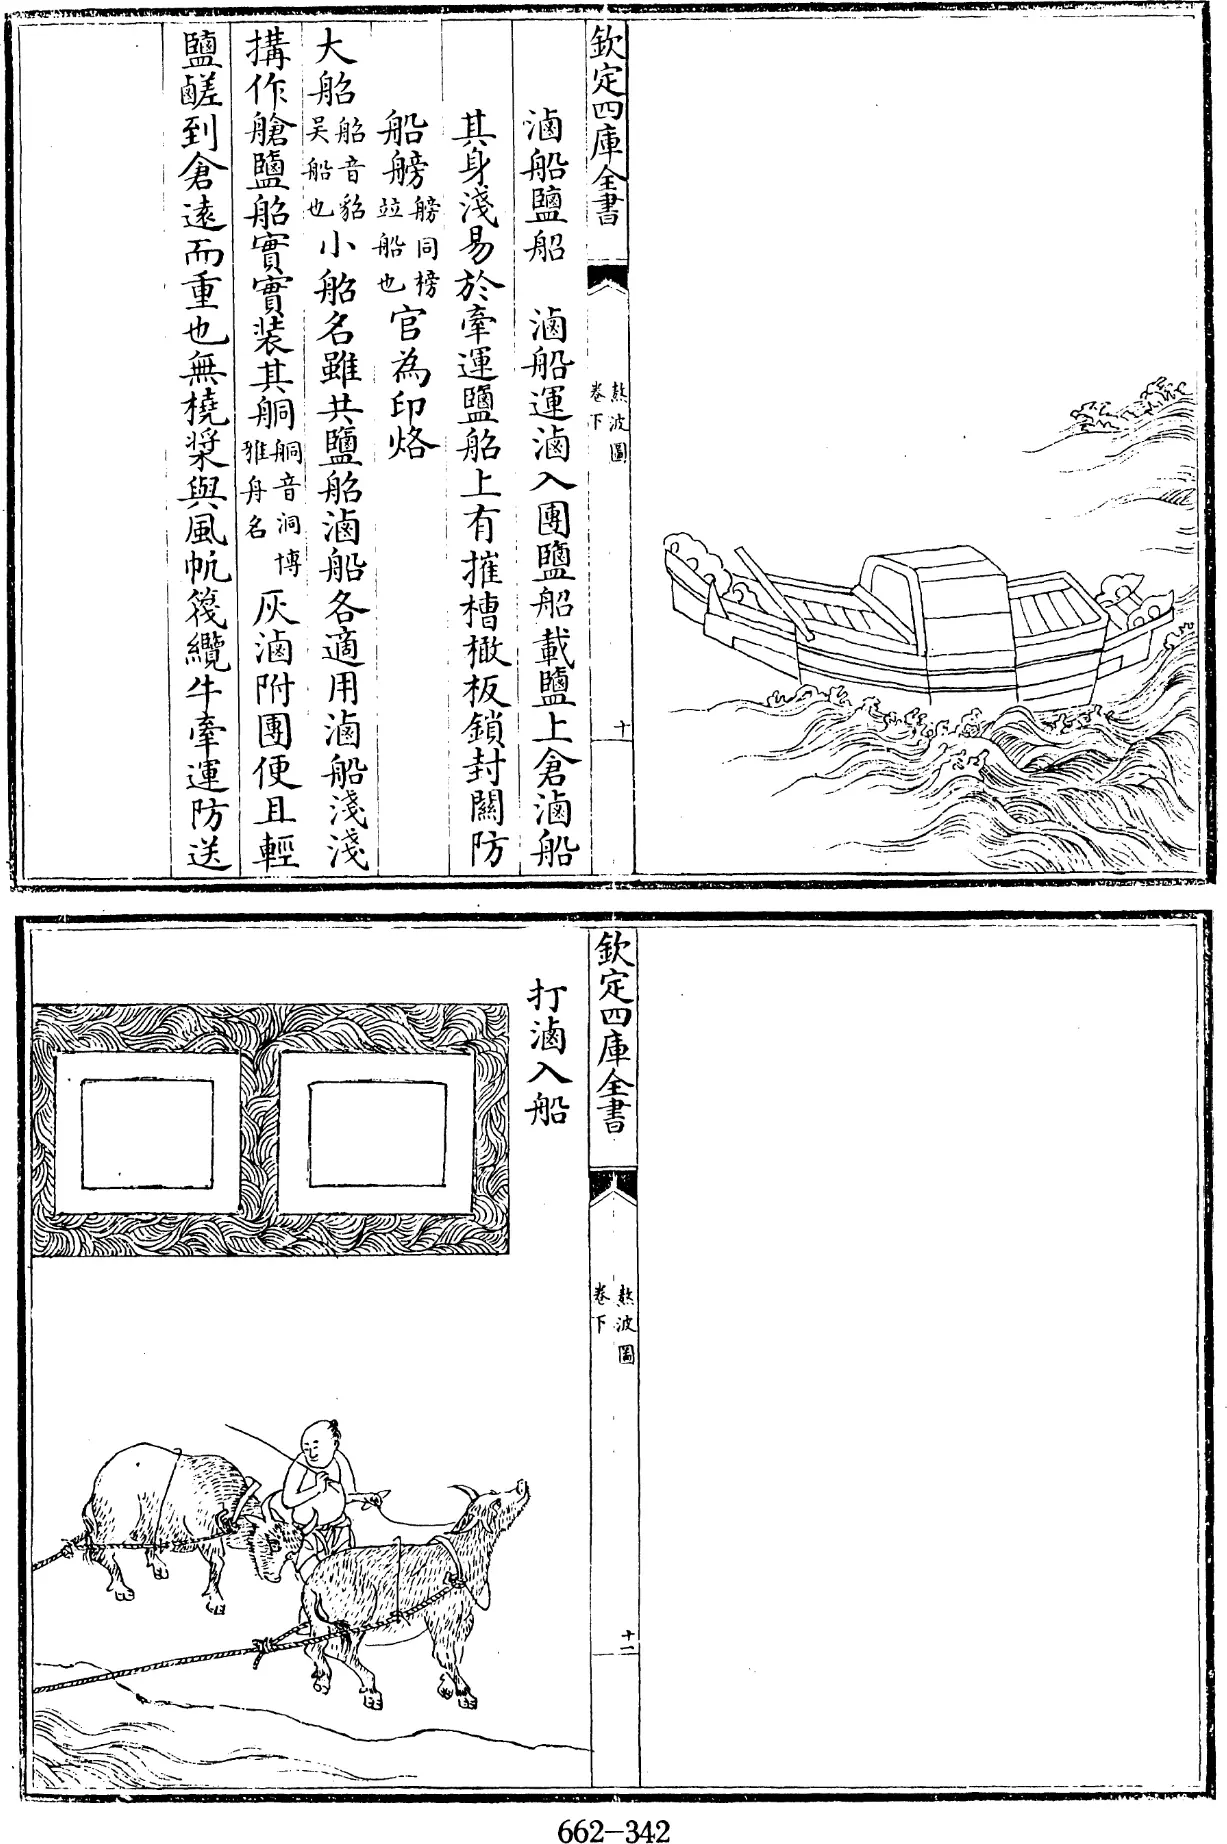 欽定四庫全書
熬波圖
卷下
十
滷船鹽⿰舟召 滷船運滷入團鹽船載鹽上倉滷船
其身淺易於牽運鹽⿰舟召上有摧槽橄板鎖封關防
船艕艕同榜竝船也官為印烙
大⿰舟召⿰舟召音貂吳船也小⿰舟召名雖共鹽⿰舟召滷船各適用滷船淺淺
搆作艙鹽⿰舟召實實装其⿰舟同⿰舟同音洞博雅舟名灰滷附團便且輕
鹽鹺到倉遠而重也無橈槳與風帆篾纜牛牽運防送
欽定四庫全書
熬波圖
卷下
十一
打滷入船
662-342